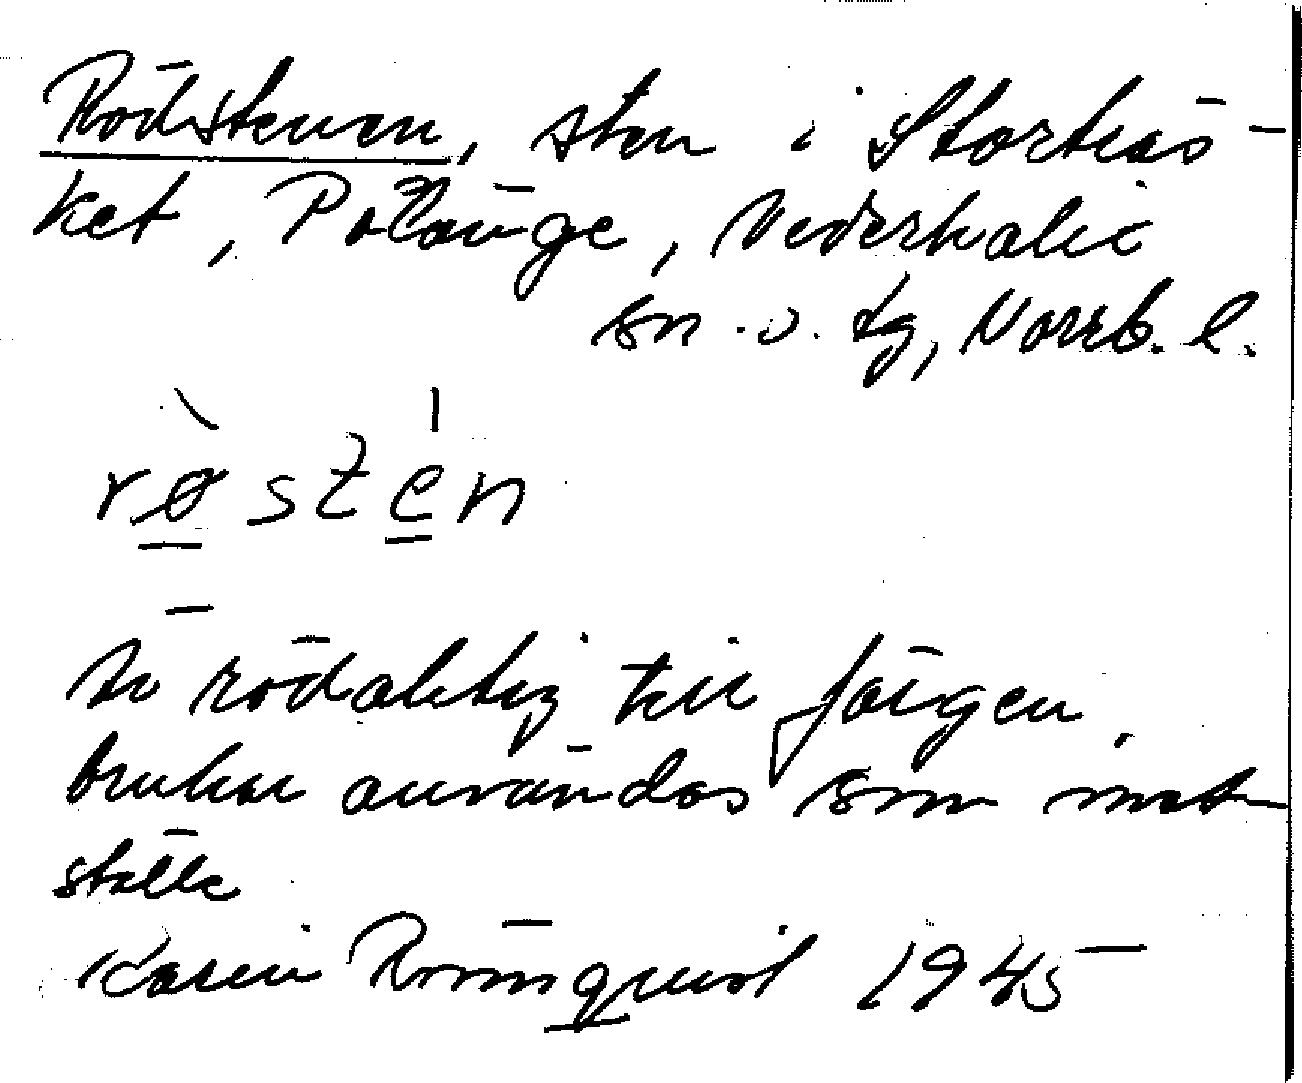 Rödstenen, sten i Storträs-
ket, Pålänge, Nederkalix
sn. o. tg, Norrb. l.
røstén
är rödaktig till färgen,
brukar användas som mat-
ställe
Karin Rönnquist 1945